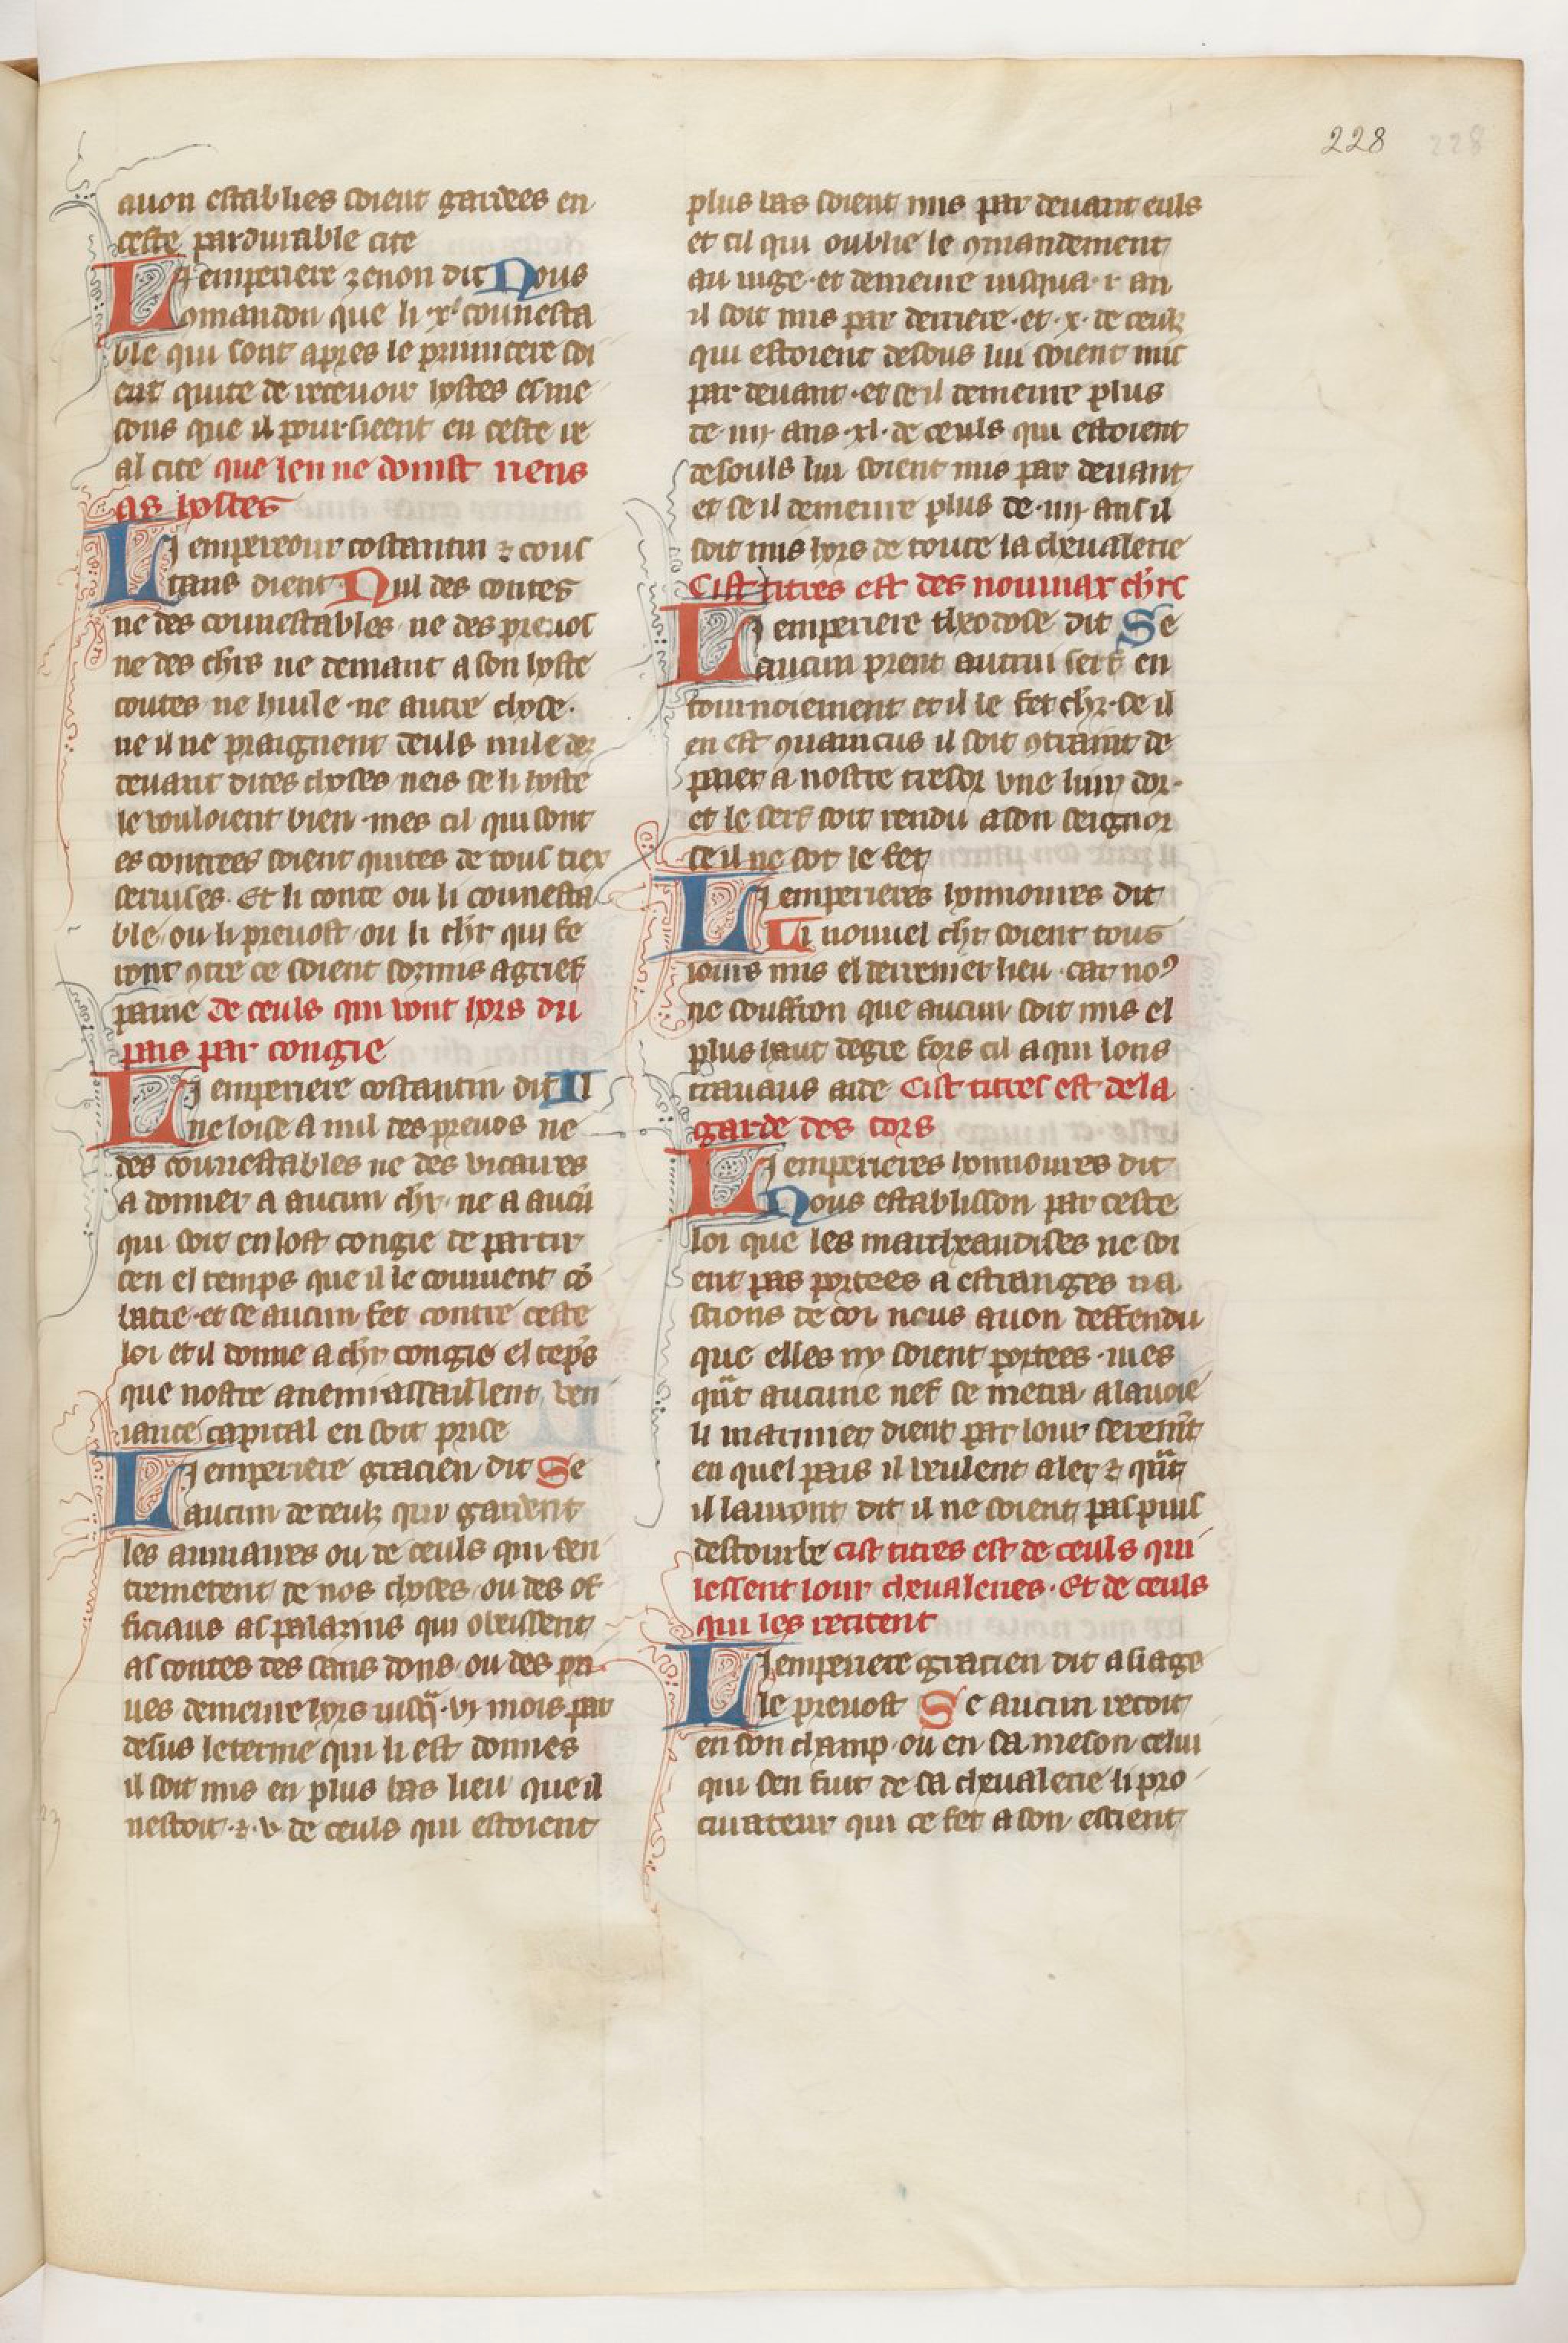 228
auon establies soient gardees en
ceste pardurable cite
Li emperiere zenon dit Nous
comandon que li .x. connesta
ble qui sont apres le primicere soi
ent quite de receuoir hostes es me
sons que il poursieent en ceste re
al cite que len ne doinst riens
as hostes
Li empereour costantin ⁊ cous
tans dient Nul des contes
ne des connestables ne des preuos
ne des chrs ne demant a son hoste
coutes ne huile ne autre chose.
ne il ne praignent deuls nule des
deuant dites choses neis se li hoste
le vouloient bien. mes cil qui sont
es contrees soient quites de tous tiex
seruises. Et li conte ou li connesta
ble ou li preuost ou li chr qui fe
ront ꝯtre ce soient sozmis a grief
paine De ceuls qui vont hors du
pais par congie
Li emperiere costantin dit Il
ne loise a nul des preuos ne
des connestables ne des vicaires
a donner a aucun chr. ne a aucū
qui soit en lost congie de partir
sen el temps que il le conuient cō
batre. et se aucun fet contre ceste
loi et il donne a chr congie el tēps
que nostre anemi assaillent, ven
iance capital en soit prise
Li emperiere gracien dit Se
aucun de ceulz qui gardent
les aumaires ou de ceuls qui sen
tremetent de nos choses ou des of
ficiaus as palazins qui obeissent
as contes des sains dons. ou des pri
ues demeure hors iusqª .vj. mois par
desus le terme qui li est donnes
il soit mis en plus bas lieu que il
nestoit. ⁊ .v. de ceuls qui estoient
plus bas soient mis par deuant euls
et cil qui oublie le ꝯmandement
au iuge. et demeure iusqua .i. an
il soit mis par derriere. et .x. de ceulz
qui estoient desous lui soient mis
par deuant. et se il demeure plus
de .iiij. ans .xl. de ceuls qui estoient
desouls lui soient mis par deuant
et se il demeure plus de .iiij. ans il
soit mis hors de toute la cheualerie
Cist titres est des nouuiax chrs
Li emperiere theodose dit Se
aucun prent autrui serf en
tournoiement et il le fet chr. se il
en est ꝯuaincus il soit ꝯtraint de
paier a nostre tresor vne liure dor.
et le serf soit rendu a son seignor
se il ne sot le fet
Li emperieres honnoures dit
Li nouuel chr soient tous
iours mis el derrenier lieu. car noꝰ
ne souffron que aucun soit mis el
plus haut degre fors cil a qui lons
trauaus aide. Cist titres est de la
garde des cors
Li emperieres honnoures dit
Nous establisson par ceste
loi que les marcheandises ne soi
ent pas portees a estranges na
scions de coi nous auon deffendu
que elles ny soient portees. mes
qªt aucune nef se metra a la uoie
li marinier dient par lour seremēt
en quel pais il veulent aler ⁊ qªt
il lauront dit il ne soient pas puis
destourbe cist titres est de ceuls qui
lessent lour cheualeries. Et de ceuls
qui les recitent
Li emperiere gracien dit a siage
le preuost Se aucun recoit
en son champ. ou en sa meson celui
qui sen fuit de sa cheualerie li pro
curateur qui ce fet a son escient